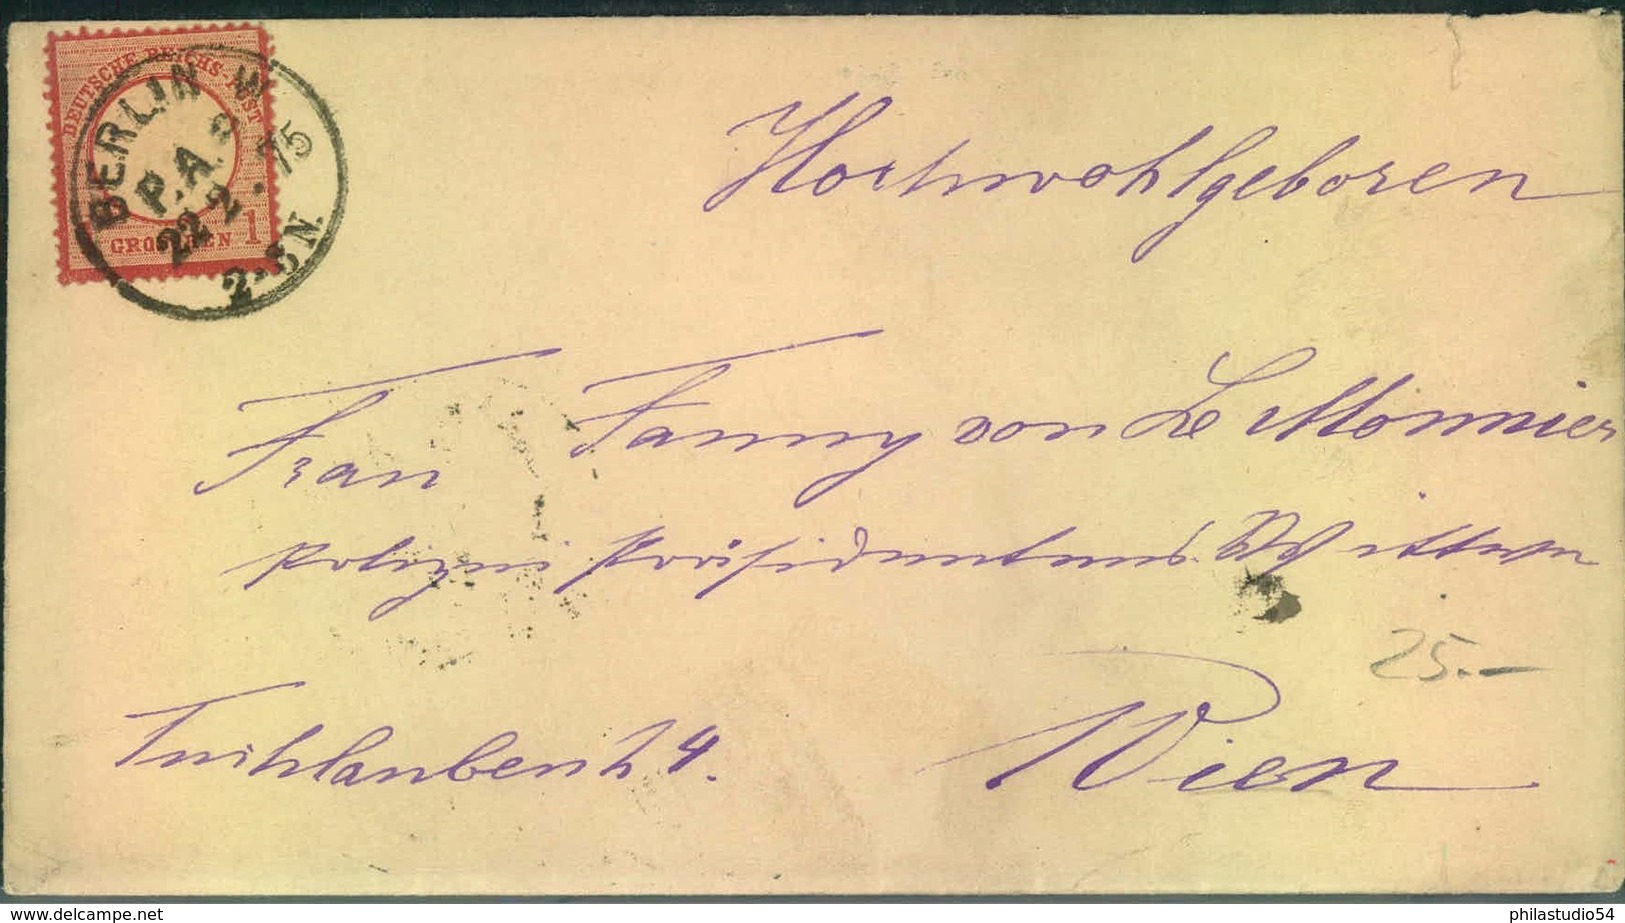 DEUTSCHE REICHS-POST
GROSCHEN 1
BERLIN W
P.A. 9
22 2 . 75
2-3 N.
Hochwohlgeboren
Frau Fanny von Le Monnier
Polizei Präsidentens Wittwe
Tuchlauben 24.
Wien
25.—
www.delcampe.net
philastudio54